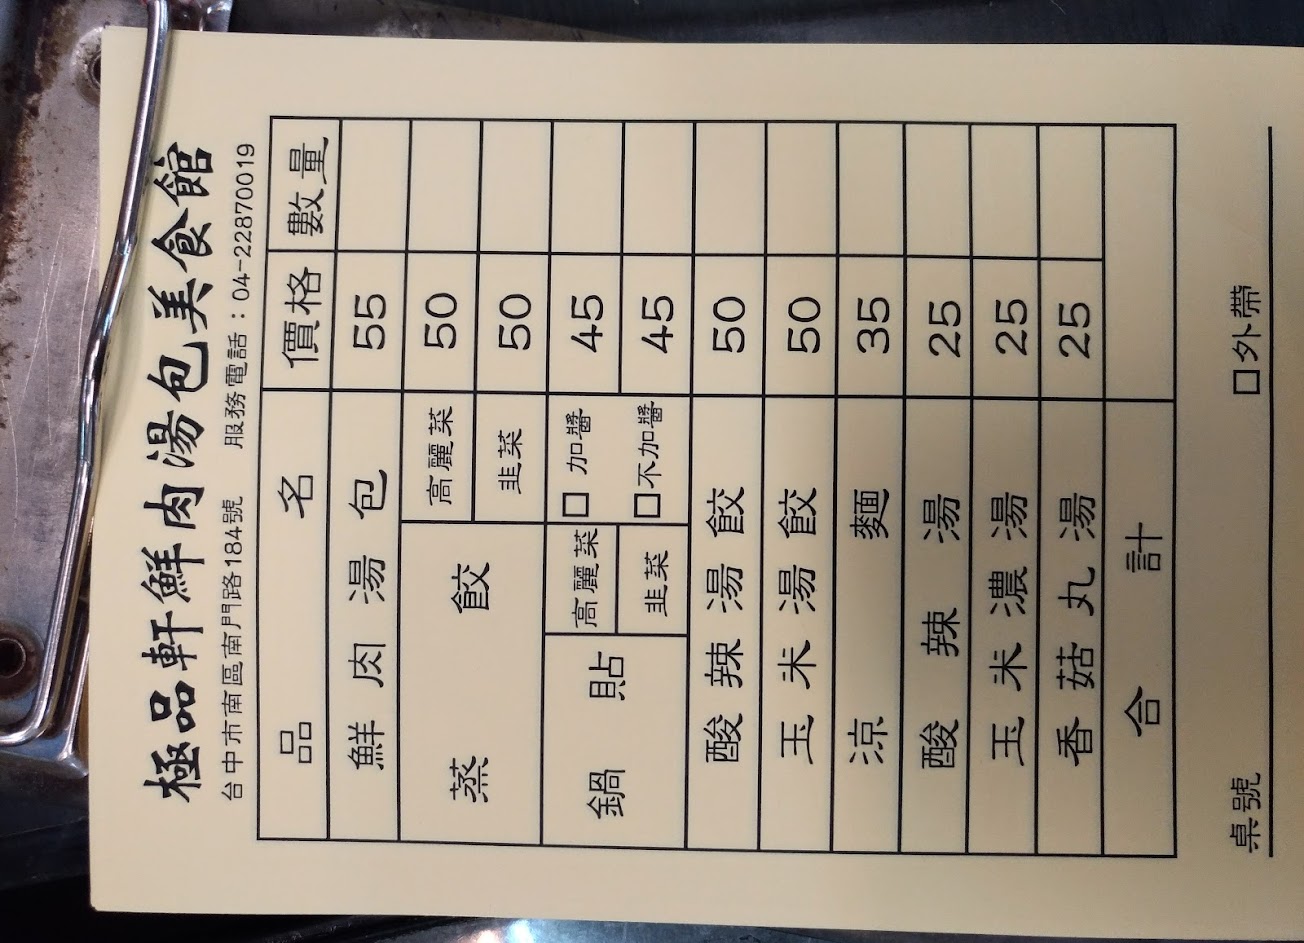 極品軒鮮肉湯包美食館
台中市南區南門路184號 服務電話：04-22870019
品名 價格 數量
鮮肉湯包 55
蒸餃 高麗菜 50
韭菜 50
鍋貼 高麗菜 □加醬 45
韭菜 □不加醬 45
酸辣湯餃 50
玉米湯餃 50
涼麵 35
酸辣湯 25
玉米濃湯 25
香菇丸湯 25
合計
桌號 □外帶